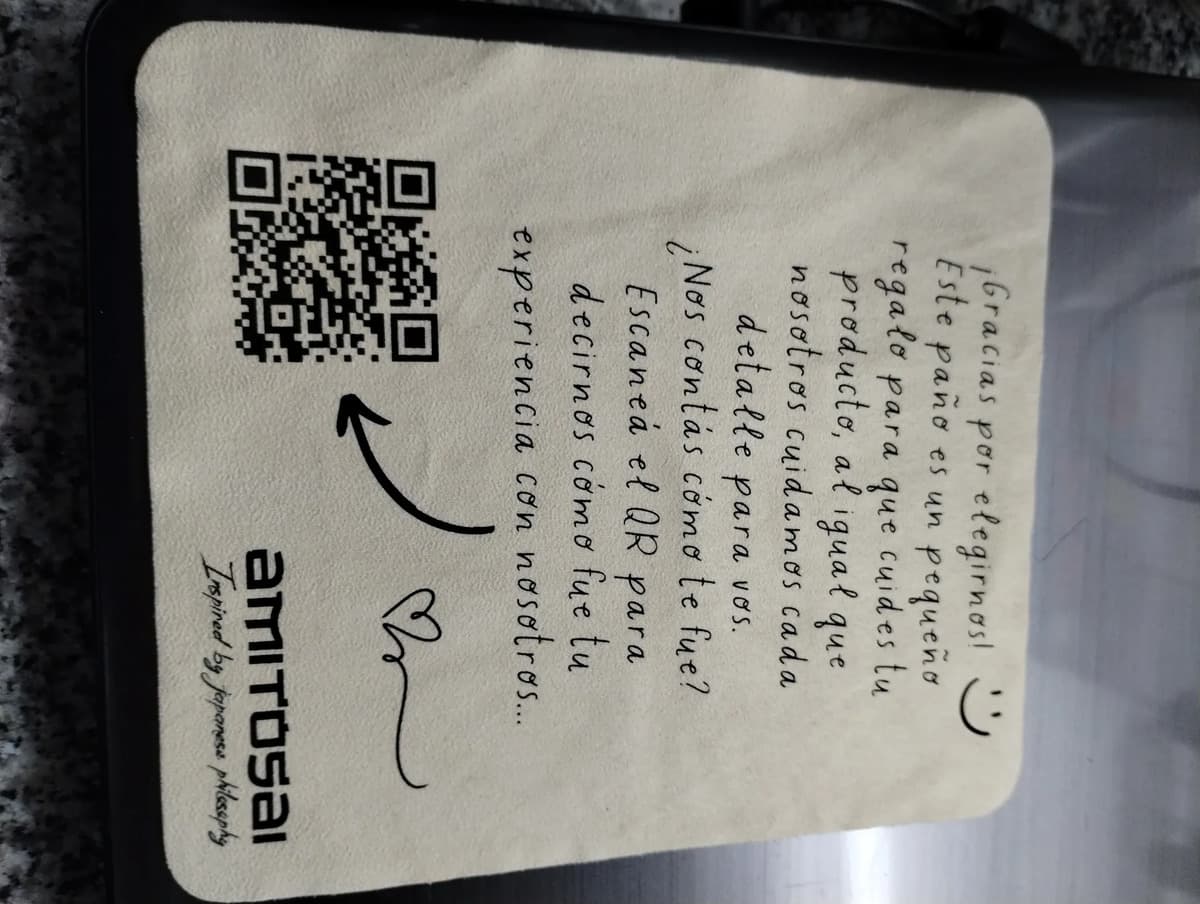 ¡Gracias por elegirnos!
Este paño es un pequeño
regalo para que cuides tu
producto, al igual que
nosotros cuidamos cada
detalle para vos.
¿Nos contás cómo te fue?
Escaneá el QR para
decirnos cómo fue tu
experiencia con nosotros...
amITOSAI
Inspined by japanese philosophy